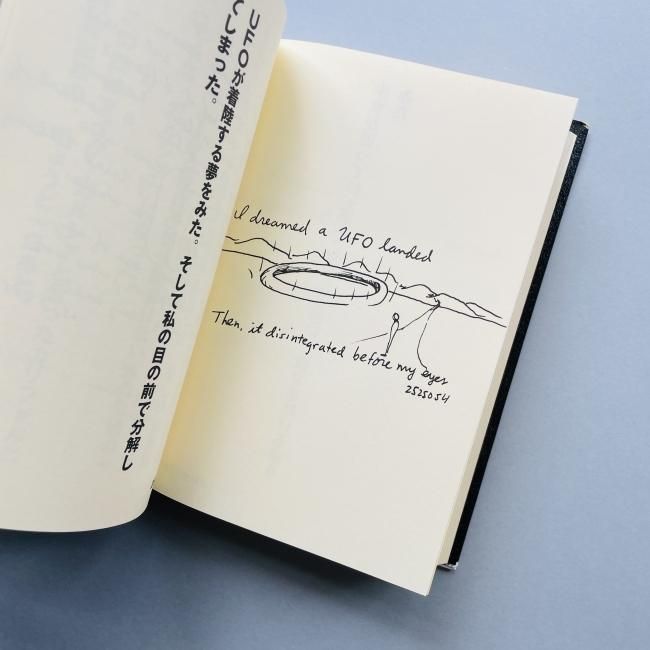 UFOが着陸する夢をみた。そして私の目の前で分解し
てしまった。
I dreamed a UFO landed
Then, it disintegrated before my eyes
2525054